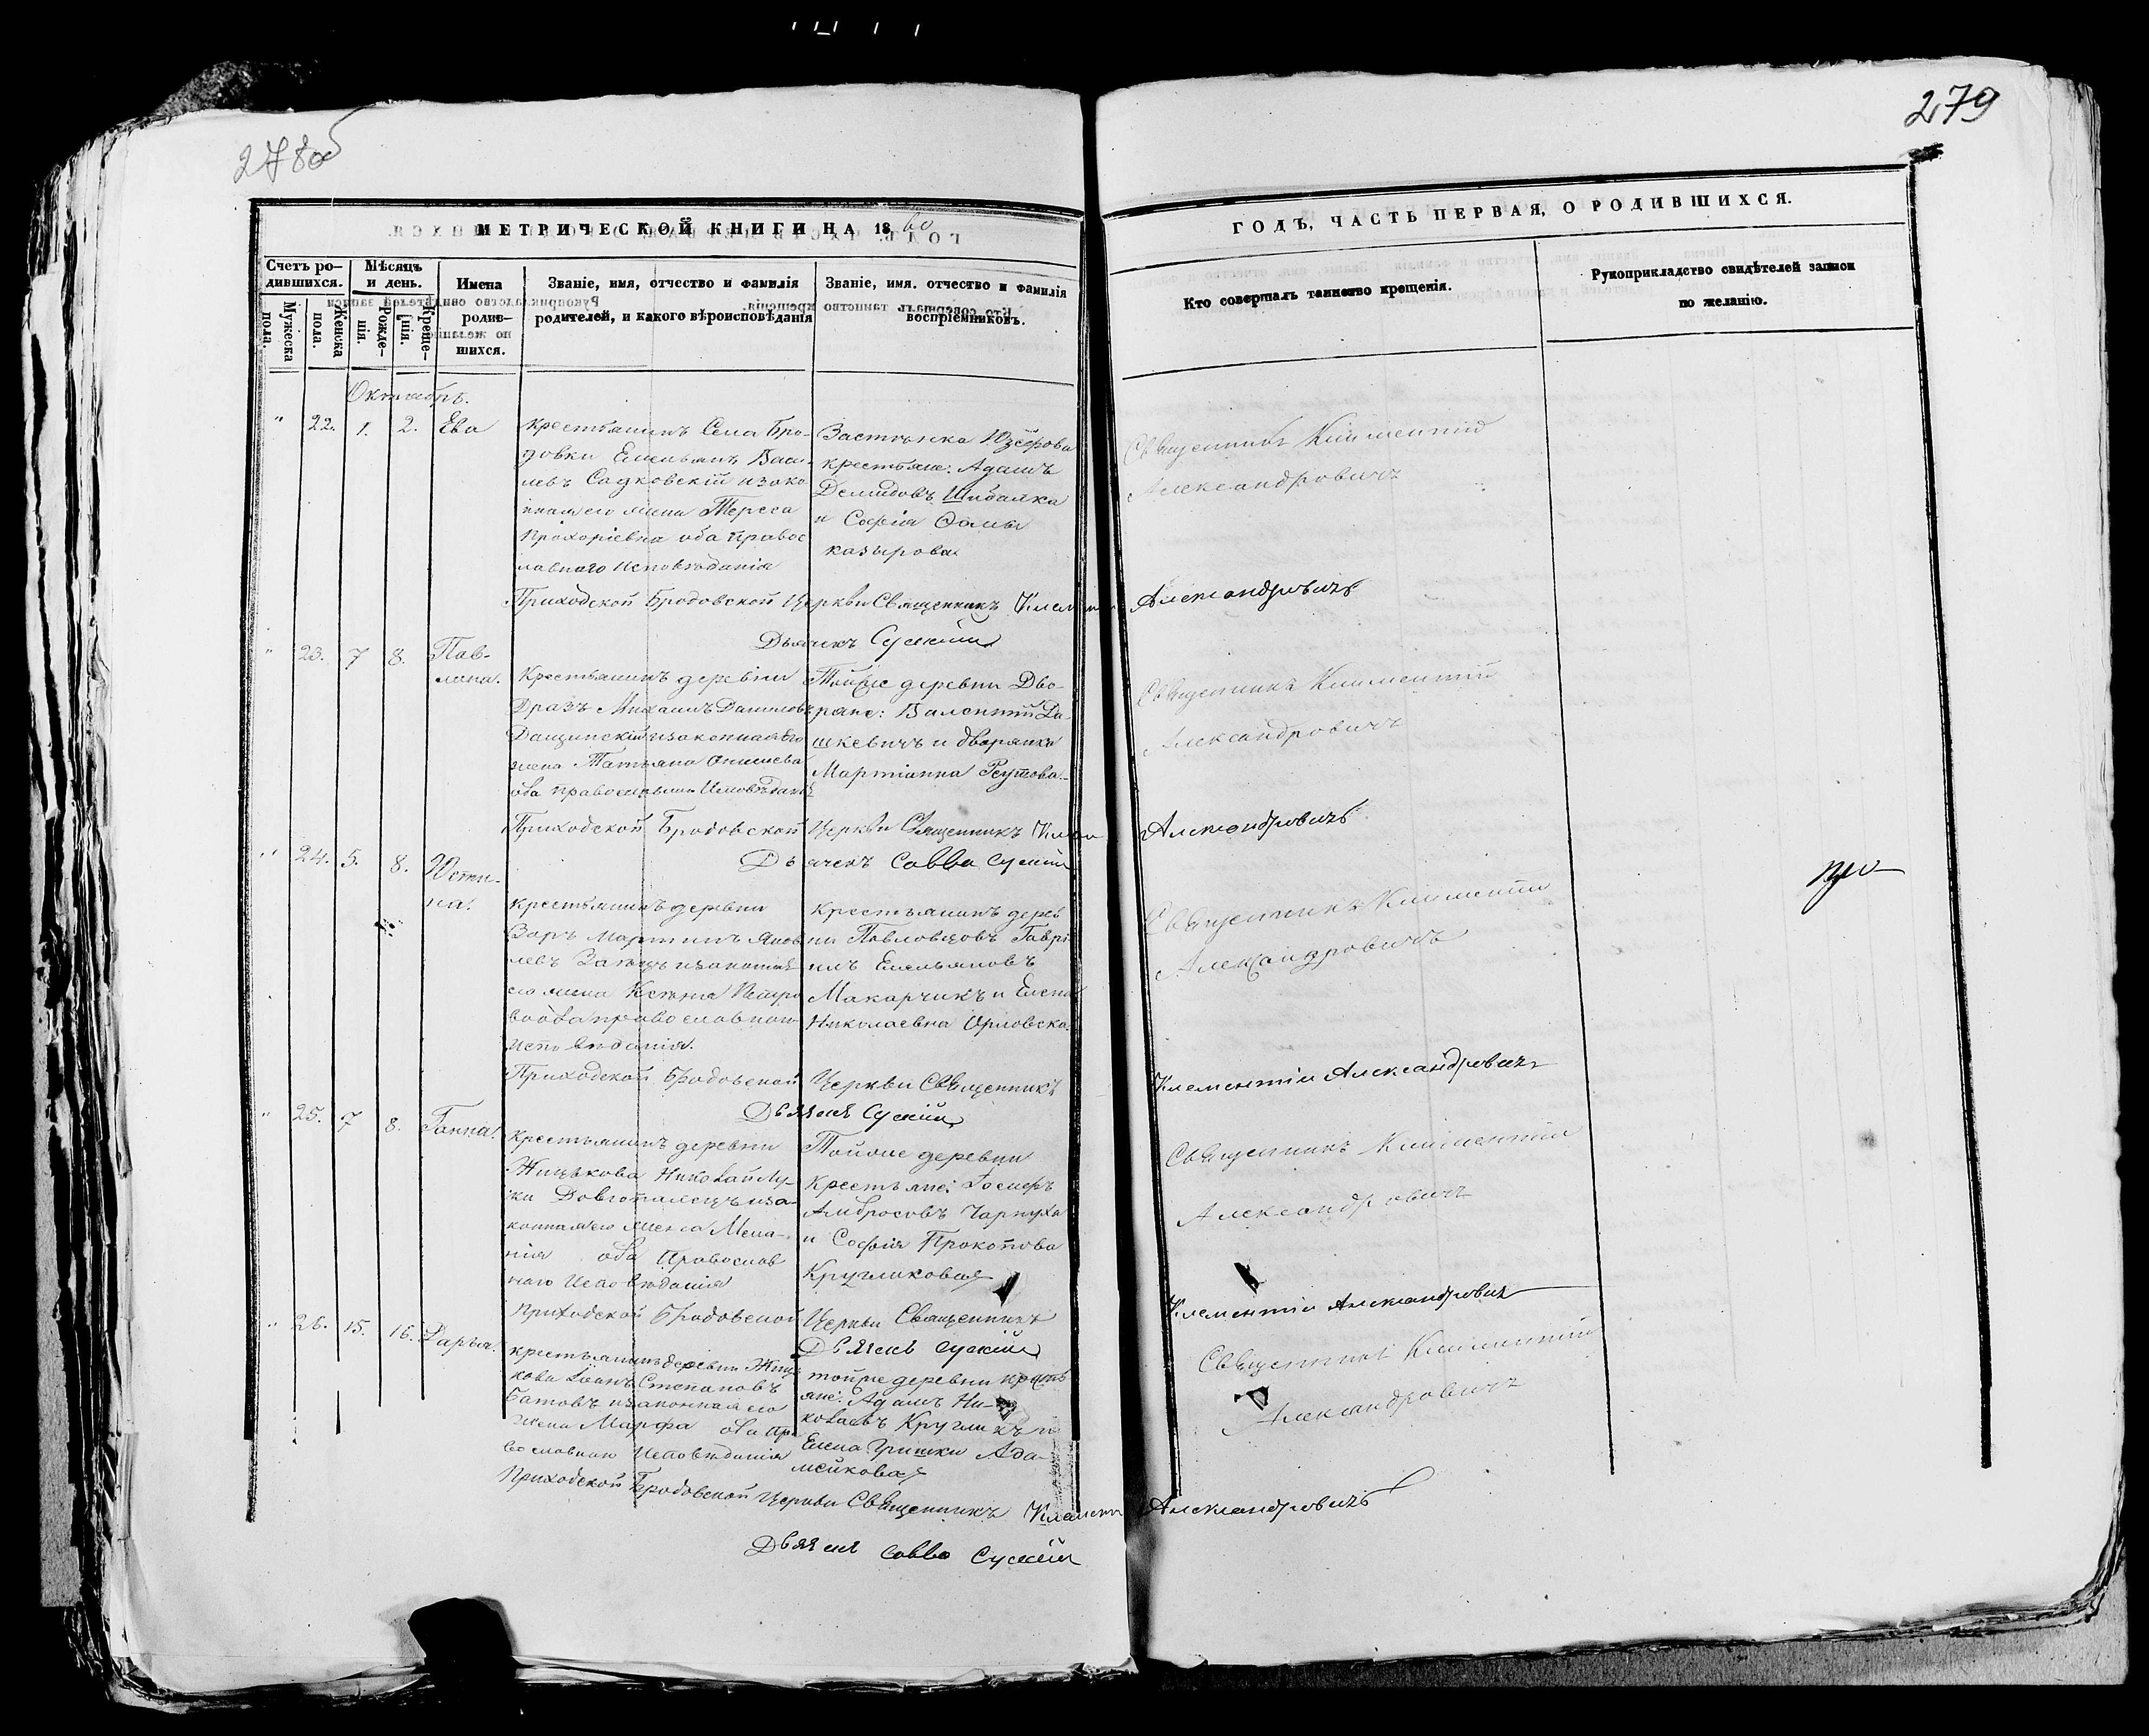 278об
279
МЕТРИЧЕСКОЙ КНИГИ НА 1860
ГОДЪ, ЧАСТЬ ПЕРВАЯ, О РОДИВШИХСЯ.
Счетъ ро-
дившихся.
Мужеска
пола.
Женска
пола.
Мѣсяцъ
и день.
Рожде-
нія.
Креще-
нія.
Имена
родив-
шихся.
Званіе, имя, отчество и фамилія
родителей, и какого вѣроисповѣданія
Званіе, имя. отчество и фамилія
воспріемниковъ.
Кто совершалъ таинство крещенія.
Рукоприкладство свидѣтелей записи
по желанію.
Октябрь.
" 22. 1. 2. Ева
Крестьянинъ Села Бро-
довки Емельянъ Васи-
левъ Садковскій и зако
нная его жена Тереса
Прохоріевна оба Правос
лавнаго Исповѣданія
Застѣнка
крестьяне: Адамъ
Демидовъ Шибалка
и Софія Фомы
казырова
Священникъ Климентій
Александровичъ
Приходской Бродовской Церкви Священникъ Климентій Александровичъ
Дьячекъ Сускій
" 23. 7 8. Пав-
лина.
Крестьянинъ деревни
Михаилъ Даниловъ
и законная его
жена Татьяна
оба православнаго Исповѣданія
Тойже деревни Дво-
ряне: Валентій Да-
шкевичъ и дворянка
Мартіанна Реутова
Священникъ Климентій
Александровичъ
Приходской Бродовской Церкви Священникъ Климентій Александровичъ
Дьячекъ Савва Сускій
" 24. 5. 8. Юсти-
на.
крестьянинъ деревни
Мартинъ Яков
левъ Заяцъ и законная
его жена Ксенія Петро
ва оба православнаго
исповѣданія.
Крестьянинъ дерев
ни Павловцовъ Гаврі
илъ Емельяновъ
Макарчикъ и Елена
Николаевна Орловска
Священникъ Климентій
Александровичъ
Приходской Бродовской Церкви Священникъ Климентій Александровичъ
Дьячекъ Сускій
" 25. 7 8. Ганна.
Крестьянинъ деревни
Жицькова Николай Лу-
ки Довгопалецъ и за-
конная его жена Мела-
нія оба Православ
наго Исповѣданія
Тойже деревни
Крестьяне:
Амбросовъ Чарнуха
и Софія Прокопова
Кругликова
Священникъ Климентій
Александровичъ
Приходской Бродовской Церкви Священникъ Климентій Александровичъ
Дьячекъ Сускій
" 26. 15. 16. Дарья.
крестьянинъ деревни Жиць
кова Іоанъ Степановъ
Батовъ и законная его
жена Марфа оба пра
вославнаго Исповѣданія
тойже деревни кресть
яне: Адамъ Ни-
колаевъ Кругликъ и
Елена Гришки Ада-
мейкова
Священникъ Климентій
Александровичъ
Приходской Бродовской Церкви Священникъ Климентій Александровичъ
Дьячекъ Савва Сускій